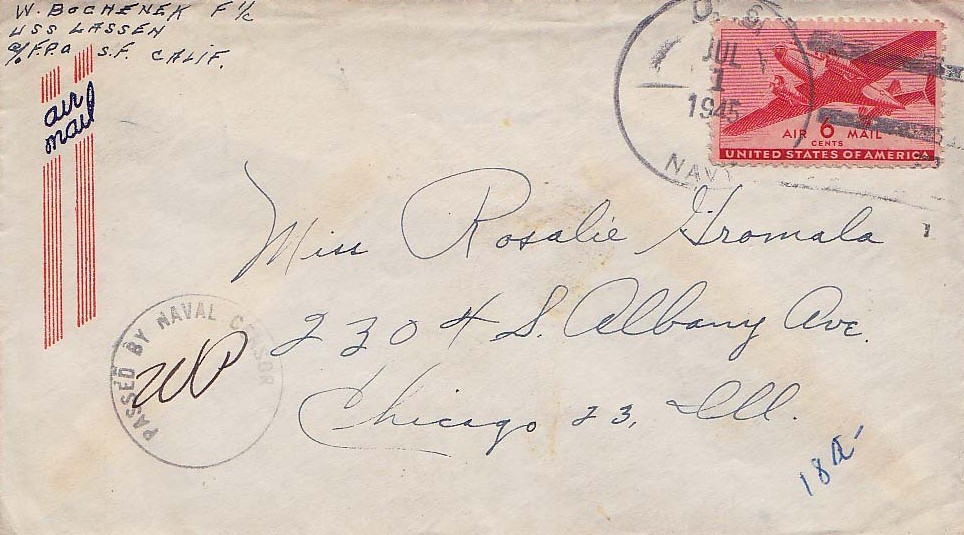 W. BOCHENEK F 1/c
USS LASSEN
c/o F.P.O S.F. CALIF.
air
mail
U.S.
JUL
1
1945
NAVY
AIR 6 MAIL
CENTS
UNITED STATES OF AMERICA
Miss Rosalie Gromala
2304 S. Albany Ave.
Chicago 23, Ill.
PASSED BY NAVAL CENSOR